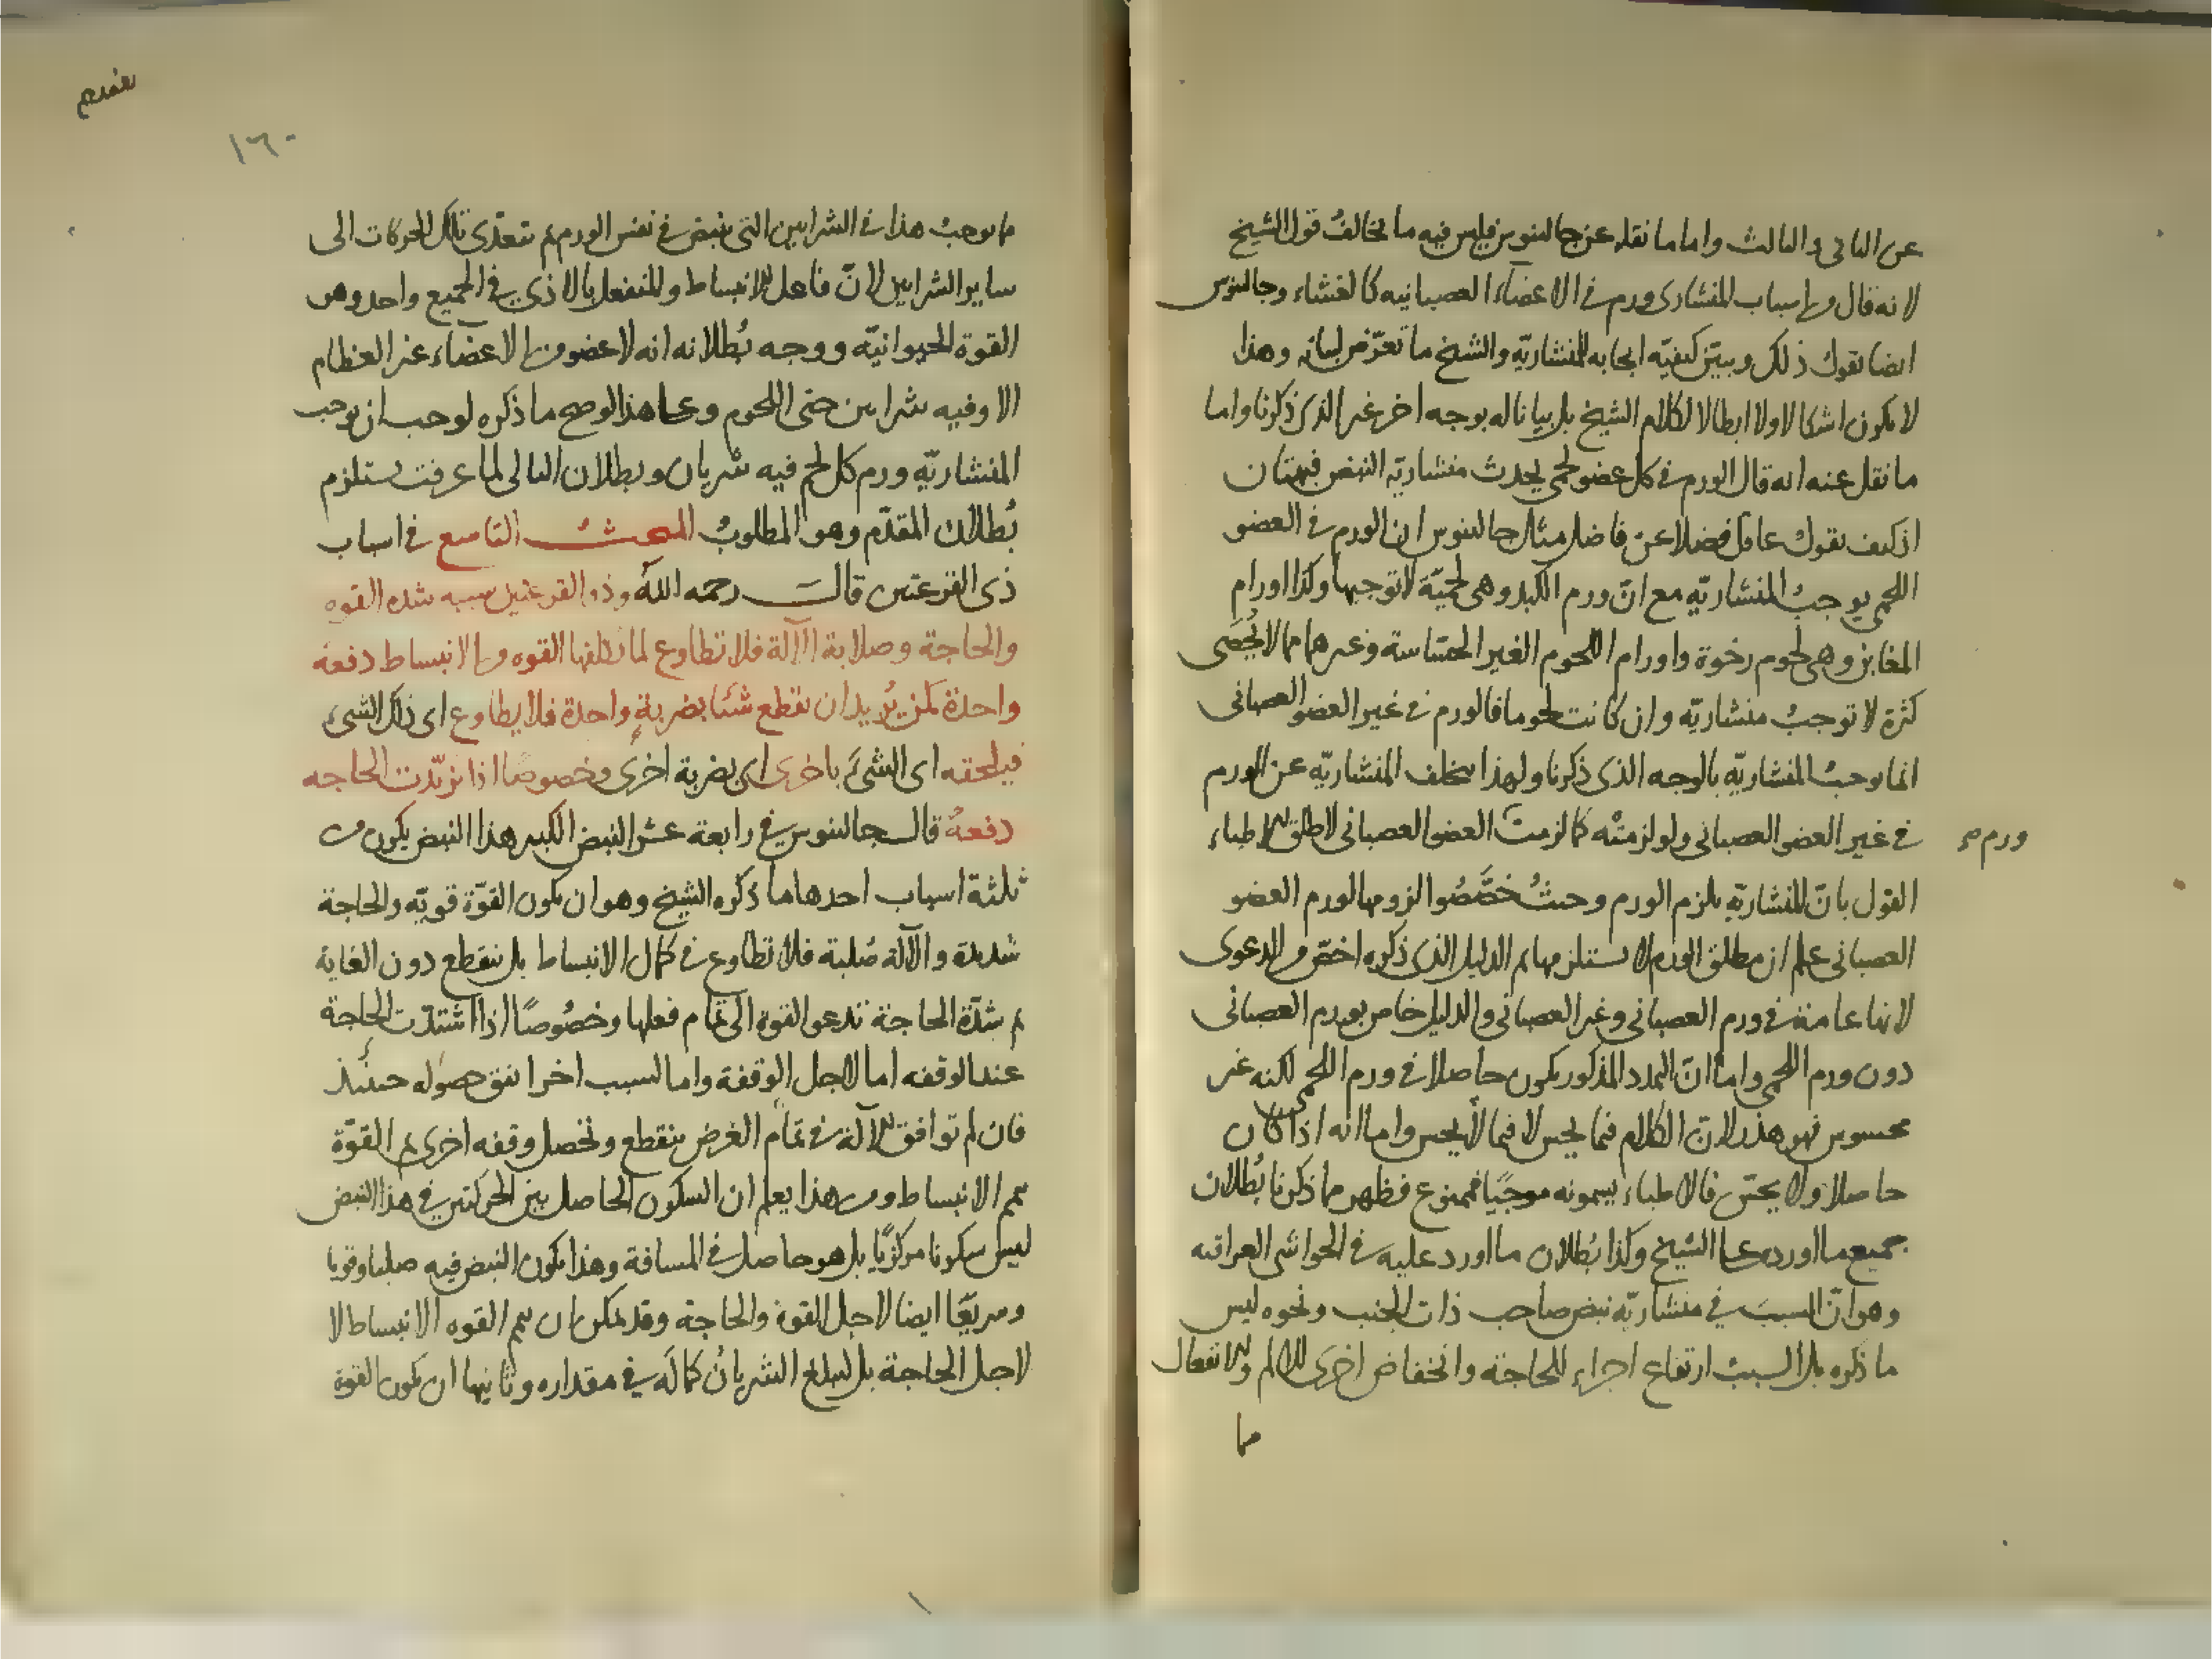 عن الثانى والثالث واما ما نقله عن جالينوس فليس فيه ما يخالف قول الشيخ
لانه قال من اسباب المنشارى ورم فى الاعضاء العصبانيه كالغشاء وجالينوس
ايضا يقول ذلك ويبيّن كيفيّة ايجابه للمنشاريّة والشيخ ما تعرّض لبيانه وهذا
لا يكون اشكالا ولا ابطالا لكلام الشيخ بل بيانا له بوجه اخر غير الذى ذكرنا واما
ما نقل عنه انه قال الورم فى كل عضو لحمى يحدث منشاريّة النبض فبهتان
اذ كيف يقول عاقل فضلا عن فاضل مثل جالينوس ان الورم فى العضو
اللحمى يوجب المنشاريّة مع انّ ورم الكبد وهى لحميّة لا توجبها وكذا اورام
المغابن وهى لحوم رخوة واورام اللحوم الغير الحسّاسة وغيرهما مما لا يُحصَى
كثرة لا توجبُ منشاريّة وان كانت لحوما فالورم فى غير العضو العصبانى
انما يوجب المنشاريّة بالوجه الذى ذكرنا ولهذا يتخلف المنشاريّة عن الورم
فى غير العضو العصبانى ولو لزمته كما لزمت العضو العصبانى لاطلق الاطباء
ورم صح
القول بانّ المنشاريّة يلزم الورم وحيثُ خصَّصُوا لزومها لورم العضو
العصبانى علم ان مطلق الورم لا يستلزمها ثم الدليل الذى ذكره اخصّ من الدعوى
لانها عامة فى ورم العصبانى وغير العصبانى والدليل خاص بورم العصبانى
دون ورم اللحمى واما انّ التمدد المذكور يكون حاصلا فى ورم اللحمى لكنه غير
محسوس فهو هذر لانّ الكلام فيما يحس لا فيما لا يحس واما انه اذا كان
حاصلا ولا يحسّ فالاطباء يسمونه موجيًا فممنوع فظهر مما ذكرنا بُطلان
جميع ما اورده على الشيخ وكذا بُطلان ما اورد عليه فى الحواشى العراقيه
وهو انّ السبب فى منشاريّة نبض صاحب ذات الجنب ونحوه ليس
ما ذكره بل السبب ارتفاع اجزاء للحاجة وانخفاض اخرى للالم ولانفعال
مما
١٦٠
ما يوجبُ هذا فى الشرايين التى ينبض فى نفس الورم ثم يتعدّى تلك الحركات الى
ساير الشرايين لانّ فاعل الانبساط والمنفعل بالاذى فى الجميع واحد وهو
القوة الحيوانيّة ووجه بُطلانه انه لا عضو من الاعضاء غير العظام
الا وفيه شرايين حتى اللحوم وعلى هذا لو صح ما ذكره لوجب ان يوجب
المنشاريّة ورم كل لحم فيه شريان وبطلان التالى لما عرفت يستلزم
بُطلان المقدّم وهو المطلوبُ المبحث التاسع فى اسباب
ذى القرعتين قال رحمه الله وذو القرعتين سببه شدة القوه
والحاجة وصلابة الآلة فلا تطاوع لما تكلفها القوه من الانبساط دفعة
واحدة كمن يُريد ان يقطع شيئا بضربة واحدة فلا يطاوع اى ذلك الشىء
فيلحقه اى الشىء باخرى اى بضربة اخرى وخصوصا اذا تزيّدت الحاجه
دفعةً قال جالينوس فى رابعة عشر النبض الكبير هذا النبض يكون من
ثلثة اسباب احدها ما ذكره الشيخ وهو ان يكون القوّة قويّه والحاجة
شديدة والآلة صُلبة فلا تطاوع فى كمال الانبساط بل ينقطع دون الغاية
ثم شدّة الحاجة تدعو القوة الى تمام فعلها وخصُوصًا اذا اشتدّت الحاجة
عند الوقفه اما لاجل الوقفة واما لسبب اخر اتفق حصوله حينئذ
فان لم توافق الآلة فى تمام الغرض ينقطع وتحصل وقفه اخرى ثم القوّة
يتمم الانبساط ومن هذا يعلم ان السكون الحاصل بين الحركتين فى هذا النبض
ليس سكونا مركزيًا بل هو حاصل فى المسافة وهذا يكون النبض فيه صلبا وقويا
وسريعًا ايضا لاجل القوة والحاجة وقد يمكن ان يتمم القوه الانبساط لا
لاجل الحاجة بل ليبلغ الشريان كماله فى مقداره وثانيها ان يكون القوة